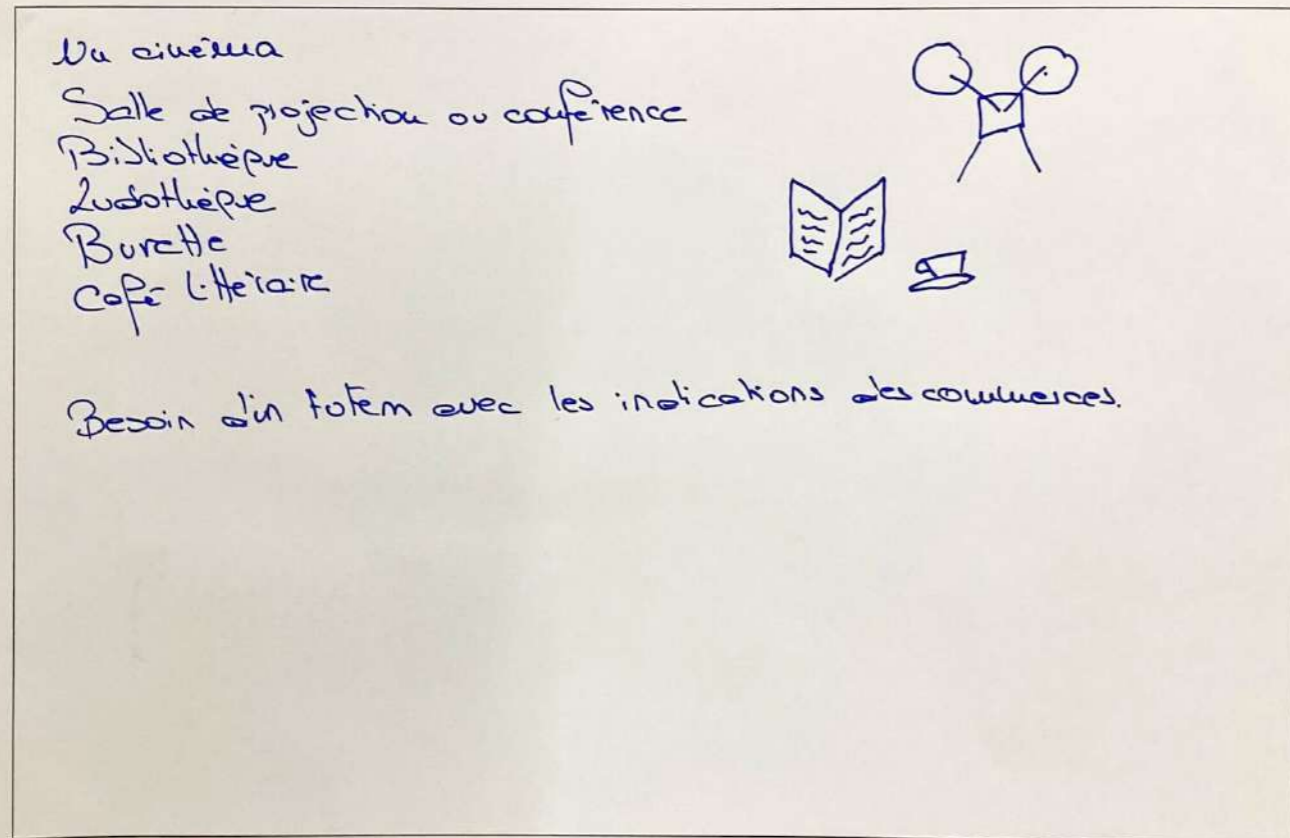 Un cinéma
Salle de projection ou conférence
Bibliothèque
Ludothèque
Buvette
Café littéraire
Besoin d'un totem avec les indications des commerces.